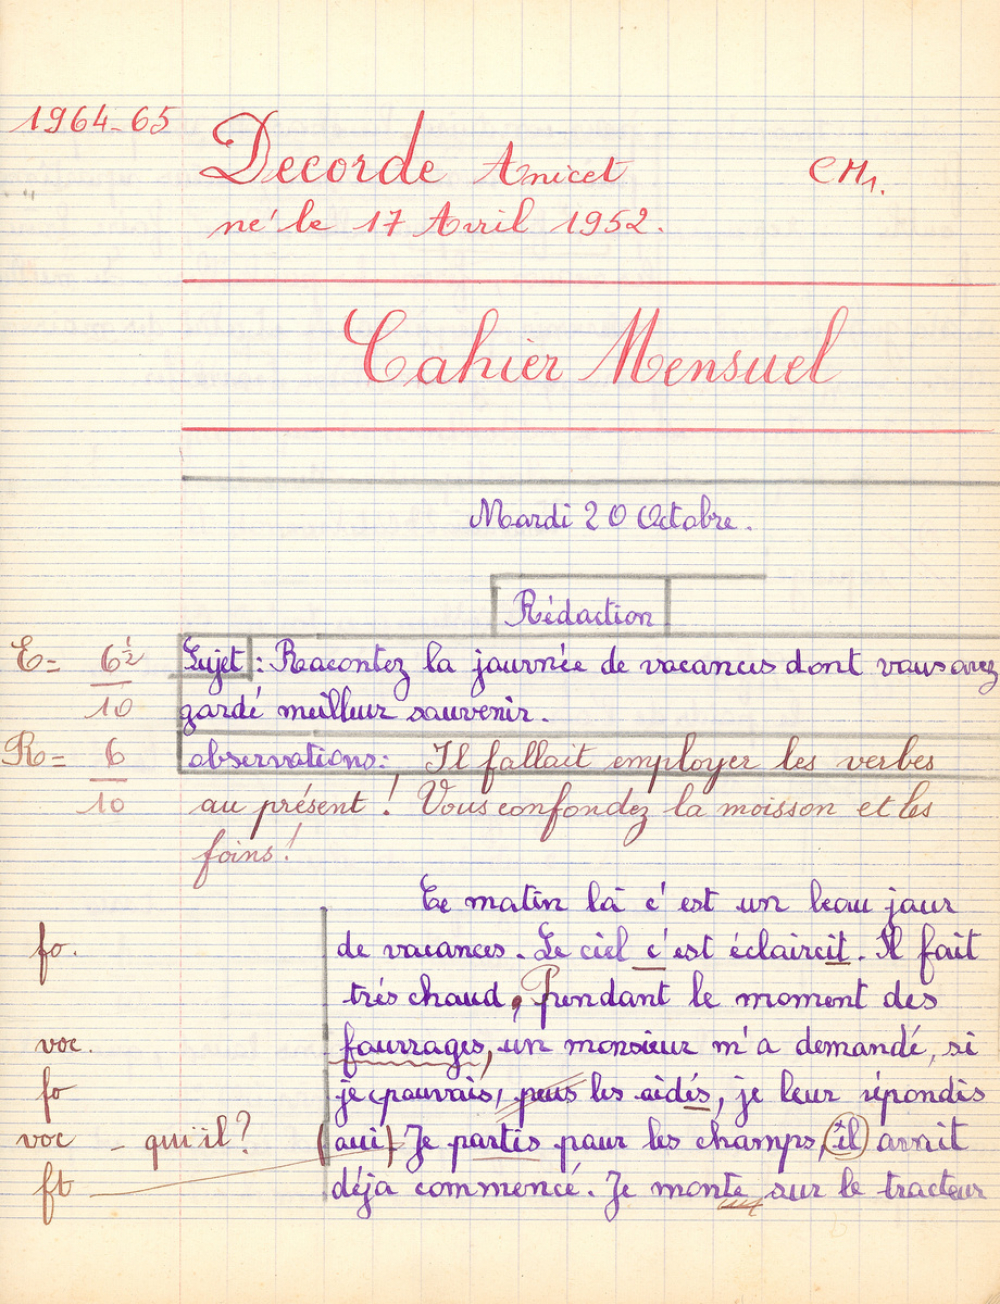 1964-65
Decorde Anicet CM1.
né le 17 Avril 1952.
Cahier Mensuel
Mardi 20 Octobre.
Rédaction
E = 6 1/2 / 10
Sujet : Racontez la journée de vacances dont vous avez
gardé meilleur souvenir.
R = 6 / 10
observations: Il fallait employer les verbes
au présent ! Vous confondez la moisson et les
foins !
Ce matin là c'est un beau jour
fo. de vacances. Le ciel c'est éclaircit. Il fait
trés chaud, Pendant le moment des
voc. fourrages, un monsieur m'a demandé, si
fo je pouvais, peus les aidés, je leur répondis
voc - qui "il"? (oui) Je partis pour les champs, il avait
ft déja commencé. Je monte sur le tracteur